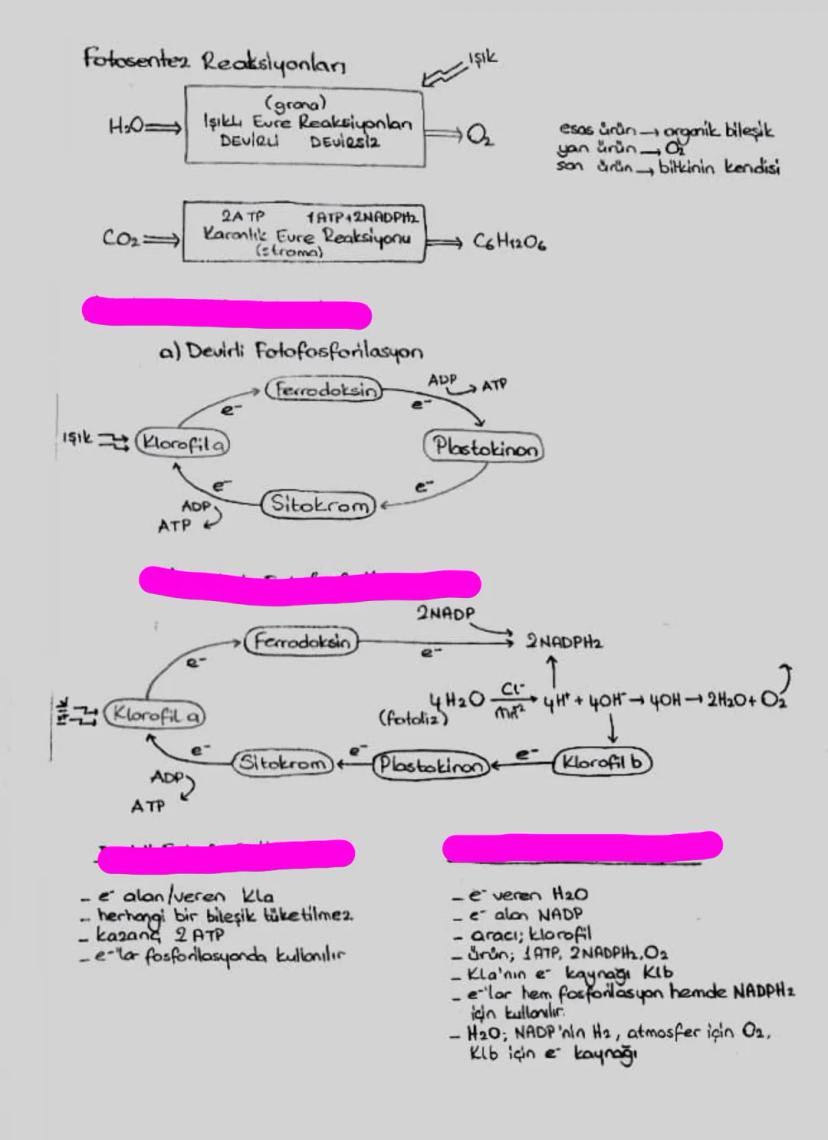 Fotosentez Reaksiyonları
ışık
(grana)
H₂O
Işıklı Evre Reaksiyonları
DEVİRLİ DEVİRSİZ
O₂
esas ürün → organik bileşik
yan ürün → O₂
son ürün → bitkinin kendisi
2ATP 1ATP+2NADPH₂
CO₂
Karanlık Evre Reaksiyonu
(stroma)
C₆H₁₂O₆
a) Devirli Fotofosforilasyon
Ferrodoksin
ADP → ATP
e⁻
e⁻
ışık
Klorofil a
Plastokinon
e⁻
e⁻
Sitokrom
ADP
ATP
2NADP
Ferrodoksin
2NADPH₂
e⁻
e⁻
ışık
Klorofil a
4H₂O Cl⁻ → 4H⁺ + 4OH⁻ → 4OH → 2H₂O + O₂
(fotoliz)
e⁻
Sitokrom
e⁻
Plastokinon
e⁻
Klorofil b
ADP
ATP
- e⁻ alan/veren Kla
- herhangi bir bileşik tüketilmez
- kazanç 2 ATP
- e⁻'lar fosforilasyonda kullanılır
- e⁻ veren H₂O
- e⁻ alan NADP
- aracı; klorofil
- ürün; 1ATP, 2NADPH₂, O₂
- Kla'nın e⁻ kaynağı Klb
- e⁻'lar hem fosforilasyon hemde NADPH₂
için kullanılır.
- H₂O; NADP'nin H₂, atmosfer için O₂,
Klb için e⁻ kaynağı